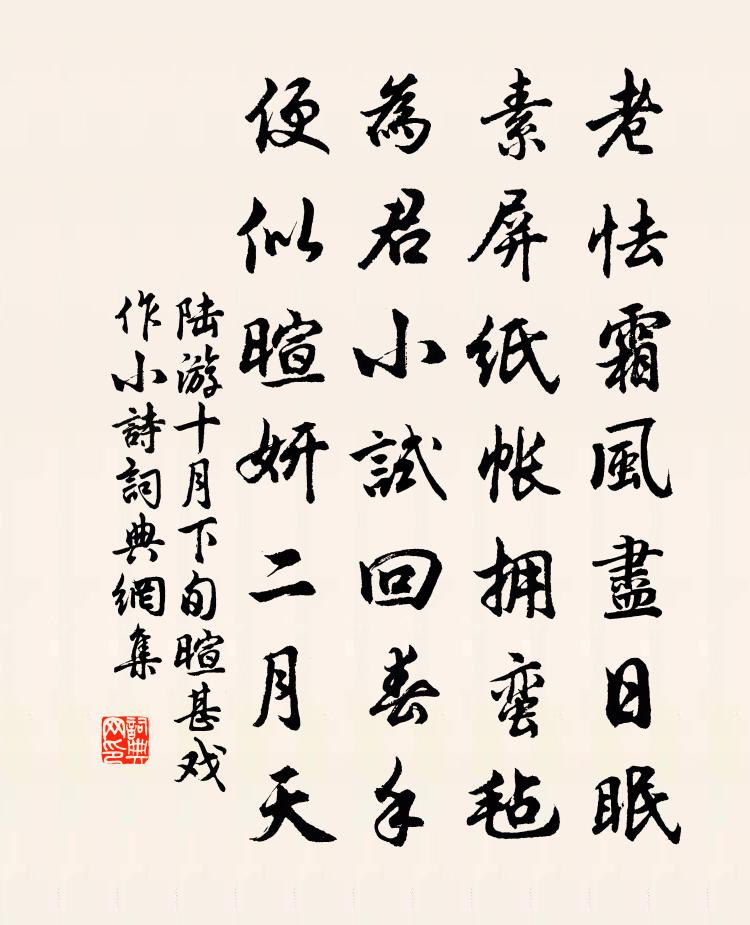 老怯霜風盡日眠
素屏紙帳拥蛮毡
為君小試回春手
便似暄妍二月天
陆游十月下旬暄甚戏
作小詩詞典網集
詞典
网印